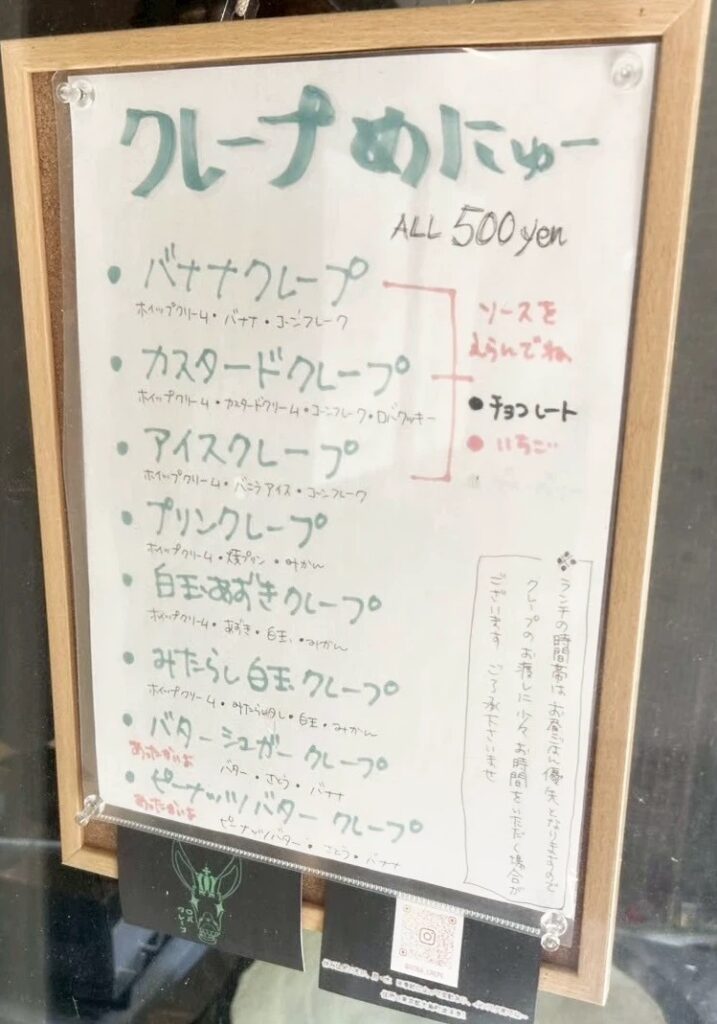 クレープ めにゅー
ALL 500yen
● バナナクレープ
ホイップクリーム・バナナ・コーンフレーク
● カスタードクレープ
ホイップクリーム・カスタードクリーム・コーンフレーク・ロバクッキー
● アイスクレープ
ホイップクリーム・バニラアイス・コーンフレーク
ソースを
えらんでね
● チョコレート
● いちご
● プリンクレープ
ホイップクリーム・焼プリン・みかん
● 白玉あずきクレープ
ホイップクリーム・あずき・白玉・みかん
● みたらし白玉クレープ
ホイップクリーム・みたらし・白玉・みかん
● バターシュガークレープ
あったかいよ
バター・さとう・バナナ
● ピーナッツバタークレープ
あったかいよ
ピーナッツバター・さとう・バナナ
ランチの時間帯は お昼ごはん優先となりますので
クレープのお渡しに少々お時間をいただく場合が
ございます ご了承下さいませ